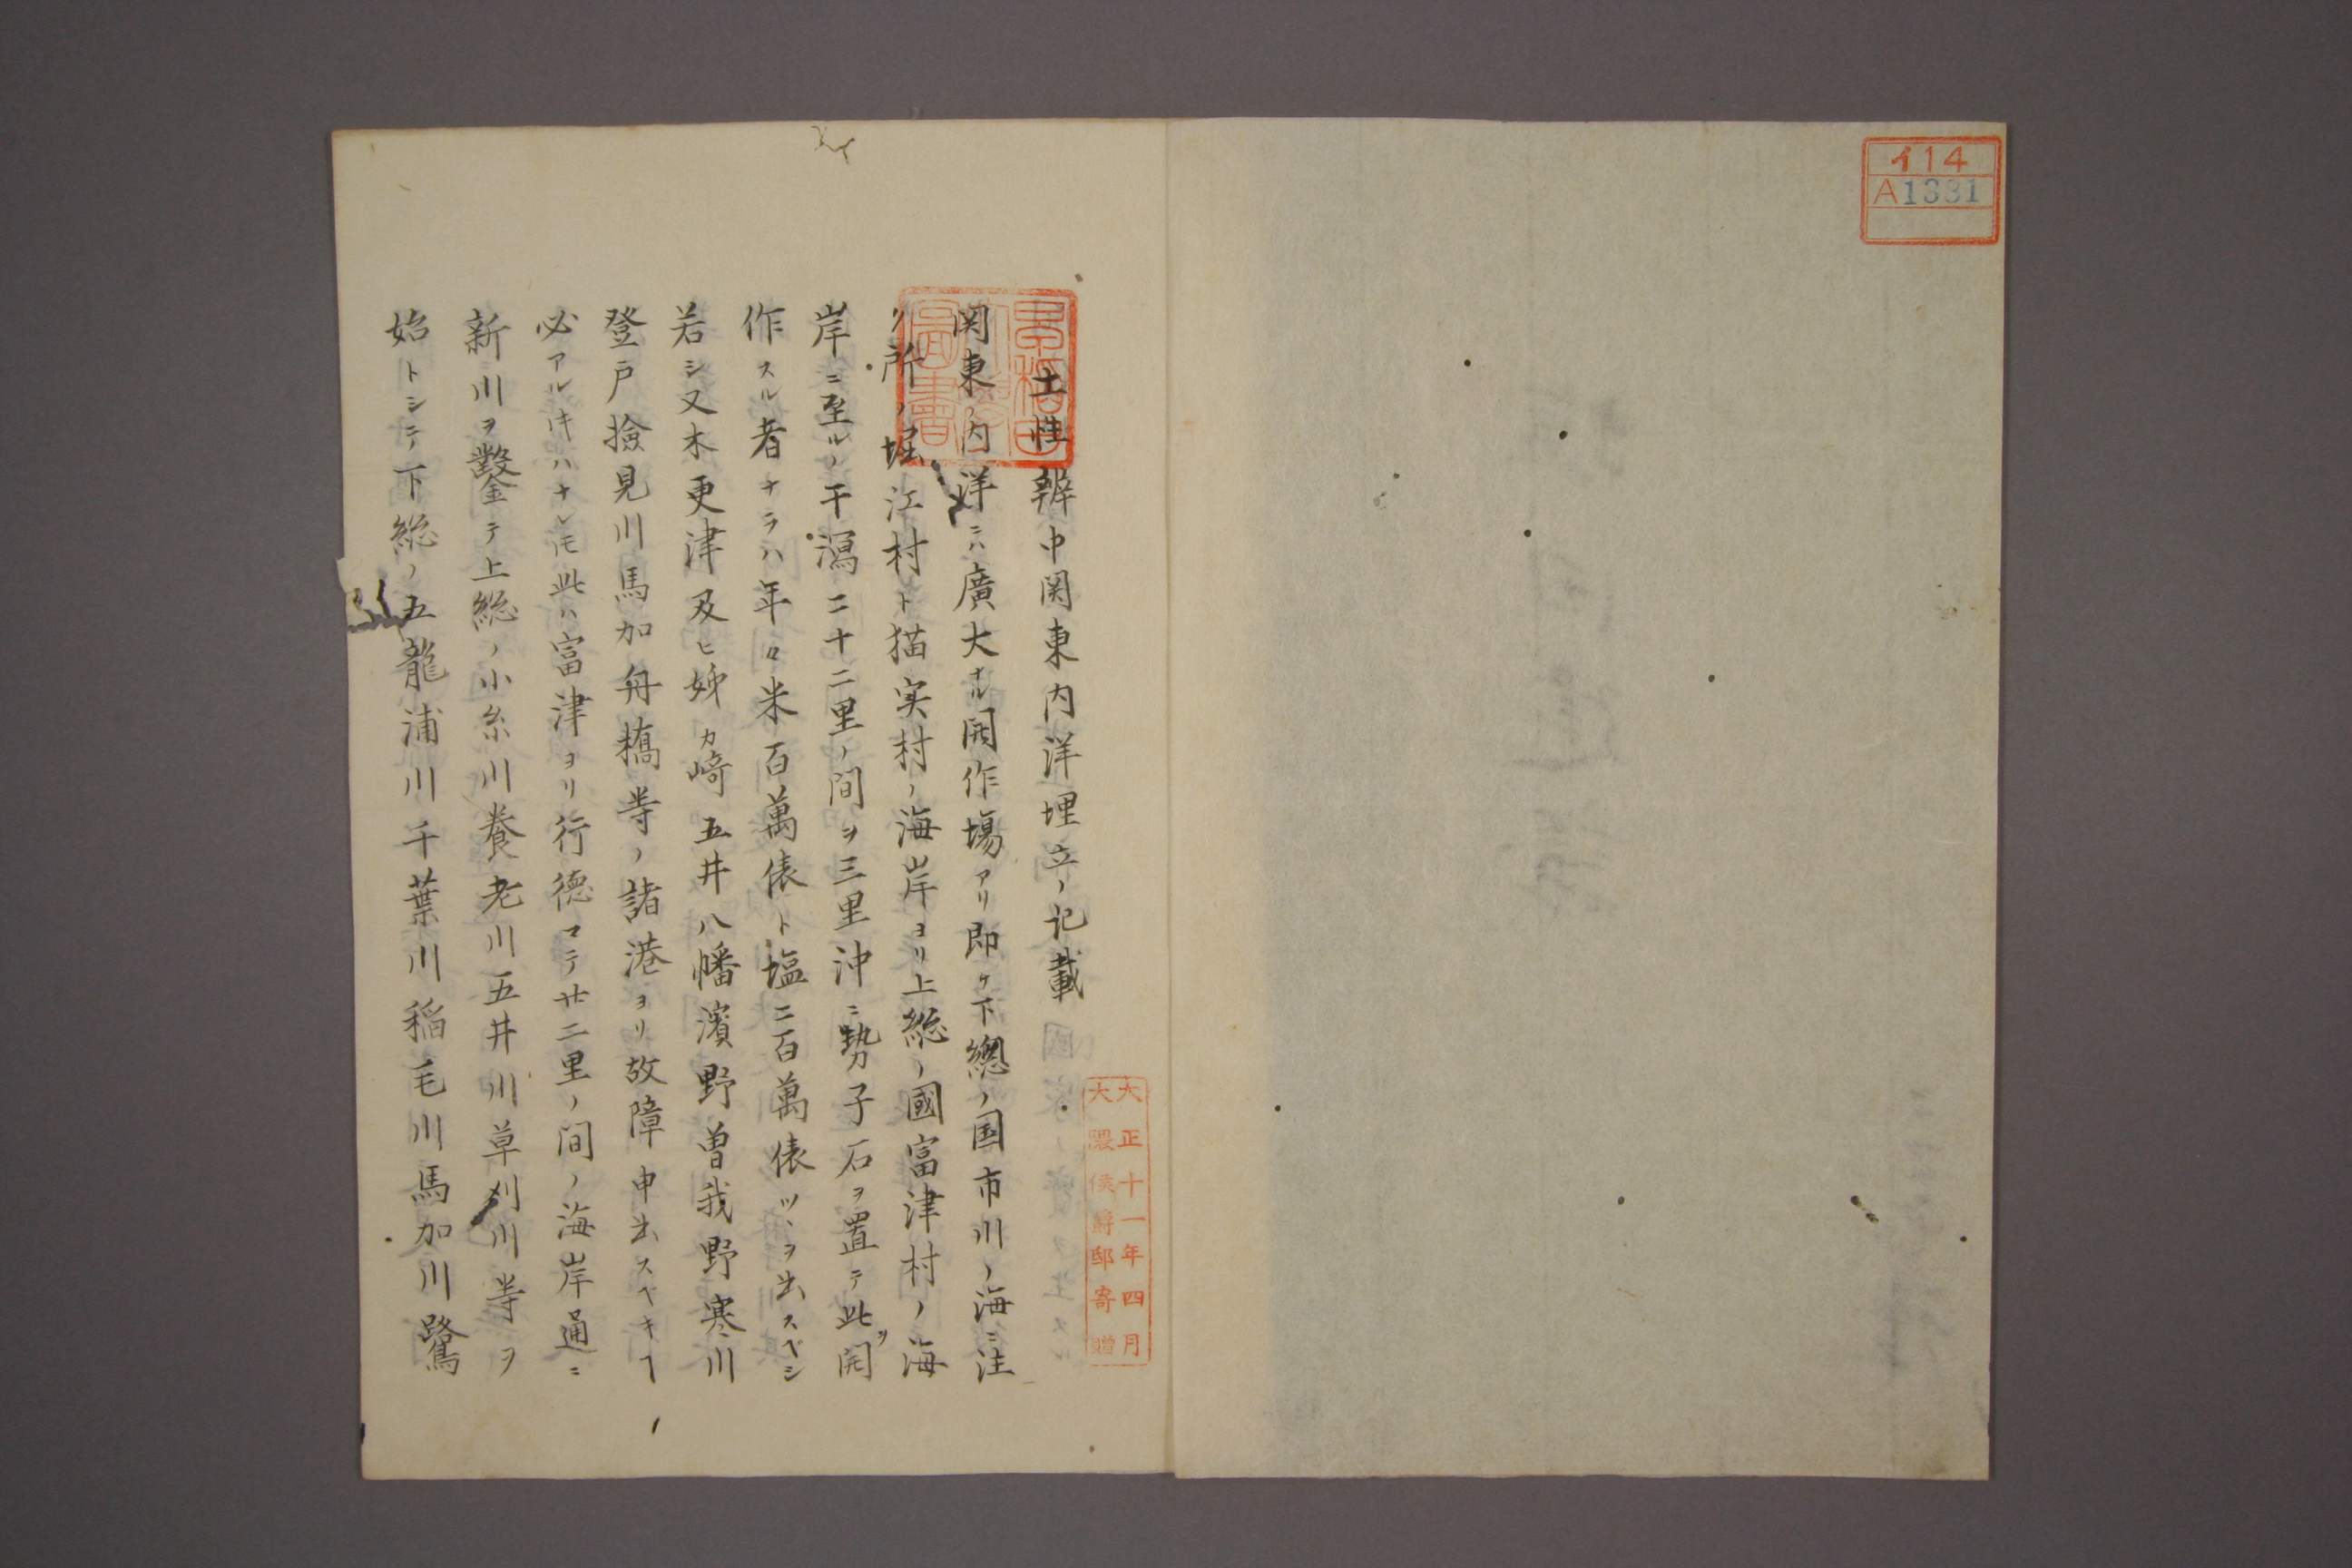 イ14
A1331
土性辨中関東内洋埋立ノ記載
関東ノ内洋ニハ廣大ナル開作場アリ即ケ下總ノ国市川ノ海ニ注
リ所ノ堀江村ト猫実村ノ海岸ヨリ上総ノ國富津村ノ海
岸ニ至ルノ干潟二十二里ノ間ヲ三里沖ニ勢子石ヲ置テ此ヲ開
作スル者ナラハ年々米百萬俵ト塩二百萬俵ツヽヲ出スベシ
若シ又木更津及ヒ姉カ崎五井八幡濱野曽我野寒川
登戸撿見川馬加舟橋等ノ諸港ヨリ故障申出スヘキヿ
必アルヰハナレ𪜈此ハ富津ヨリ行徳マテ廿二里ノ間ノ海岸通ニ
新川ヲ鑿テ上総ノ小糸川養老川五井川草刈川等ヲ
始トシテ下総ノ五龍浦川千葉川稲毛川馬加川鷺
大正十一年四月
大隈侯爵邸寄贈
早稲田大學圖書